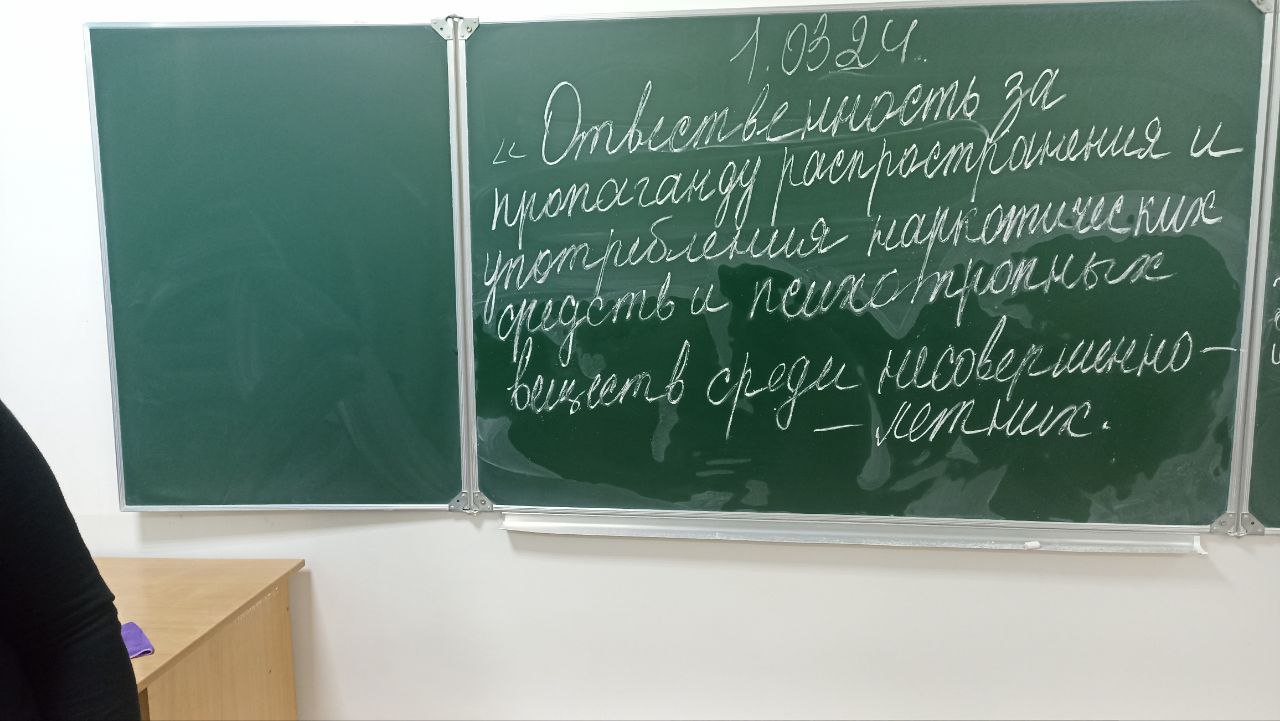 1.03.24.
«Отвественность за
пропаганду распространения и
употребления наркотических
средств и психотропных
веществ среди несовершенно-
- летних.